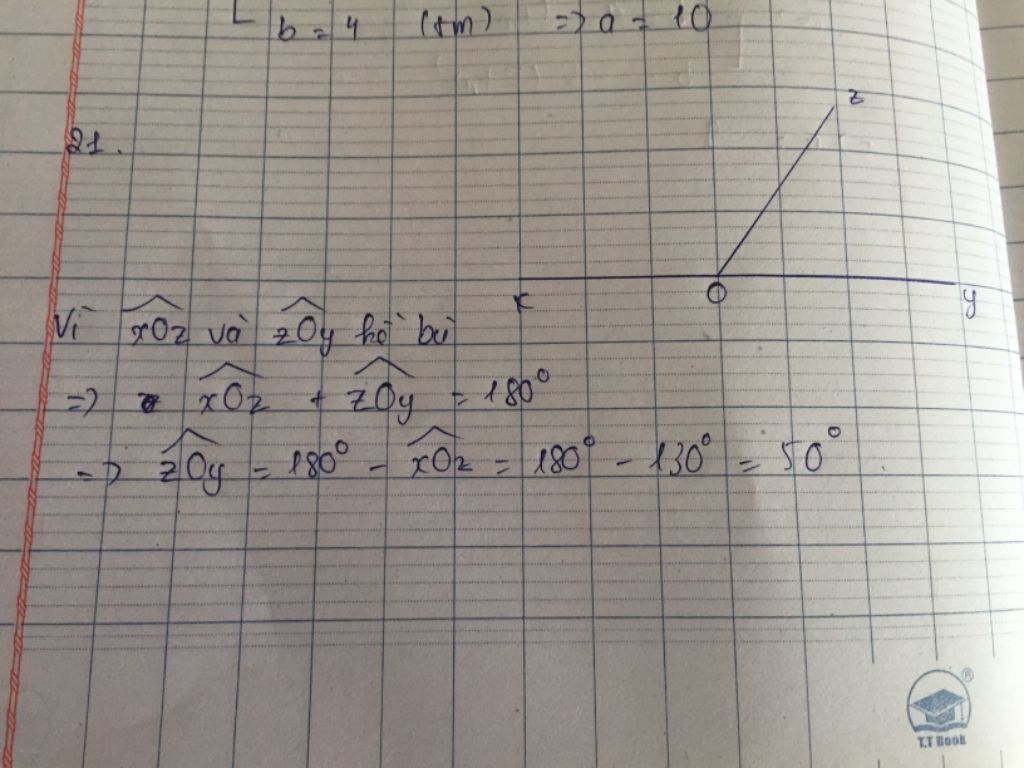 b = 4 (tm) => a = 10
z
21.
x O y
Vì xOz và zOy kề bù
=> xOz + zOy = 180°
=> zOy = 180° - xOz = 180° - 130° = 50°.
®
T.T Book